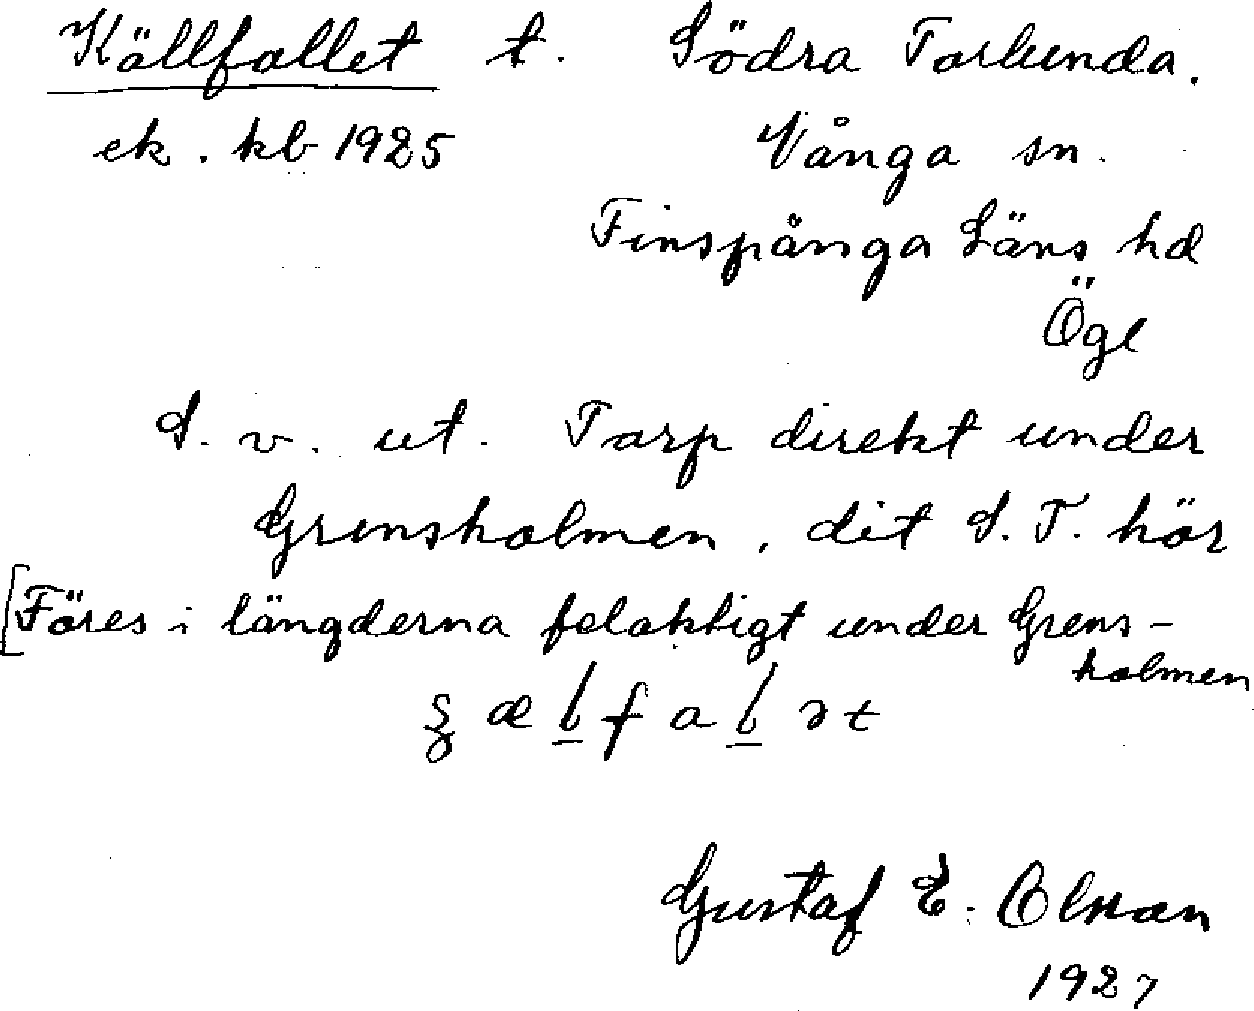 Källfallet t. Södra Torlunda.
ek. kb 1925 Vånga sn.
Finspånga Läns hd
Ögl
S. v. ut. Torp direkt under
Grensholmen, dit S. T. hör
[Föres i längderna felaktigt under Grens-
holmen
Gustaf E. Olson
1927